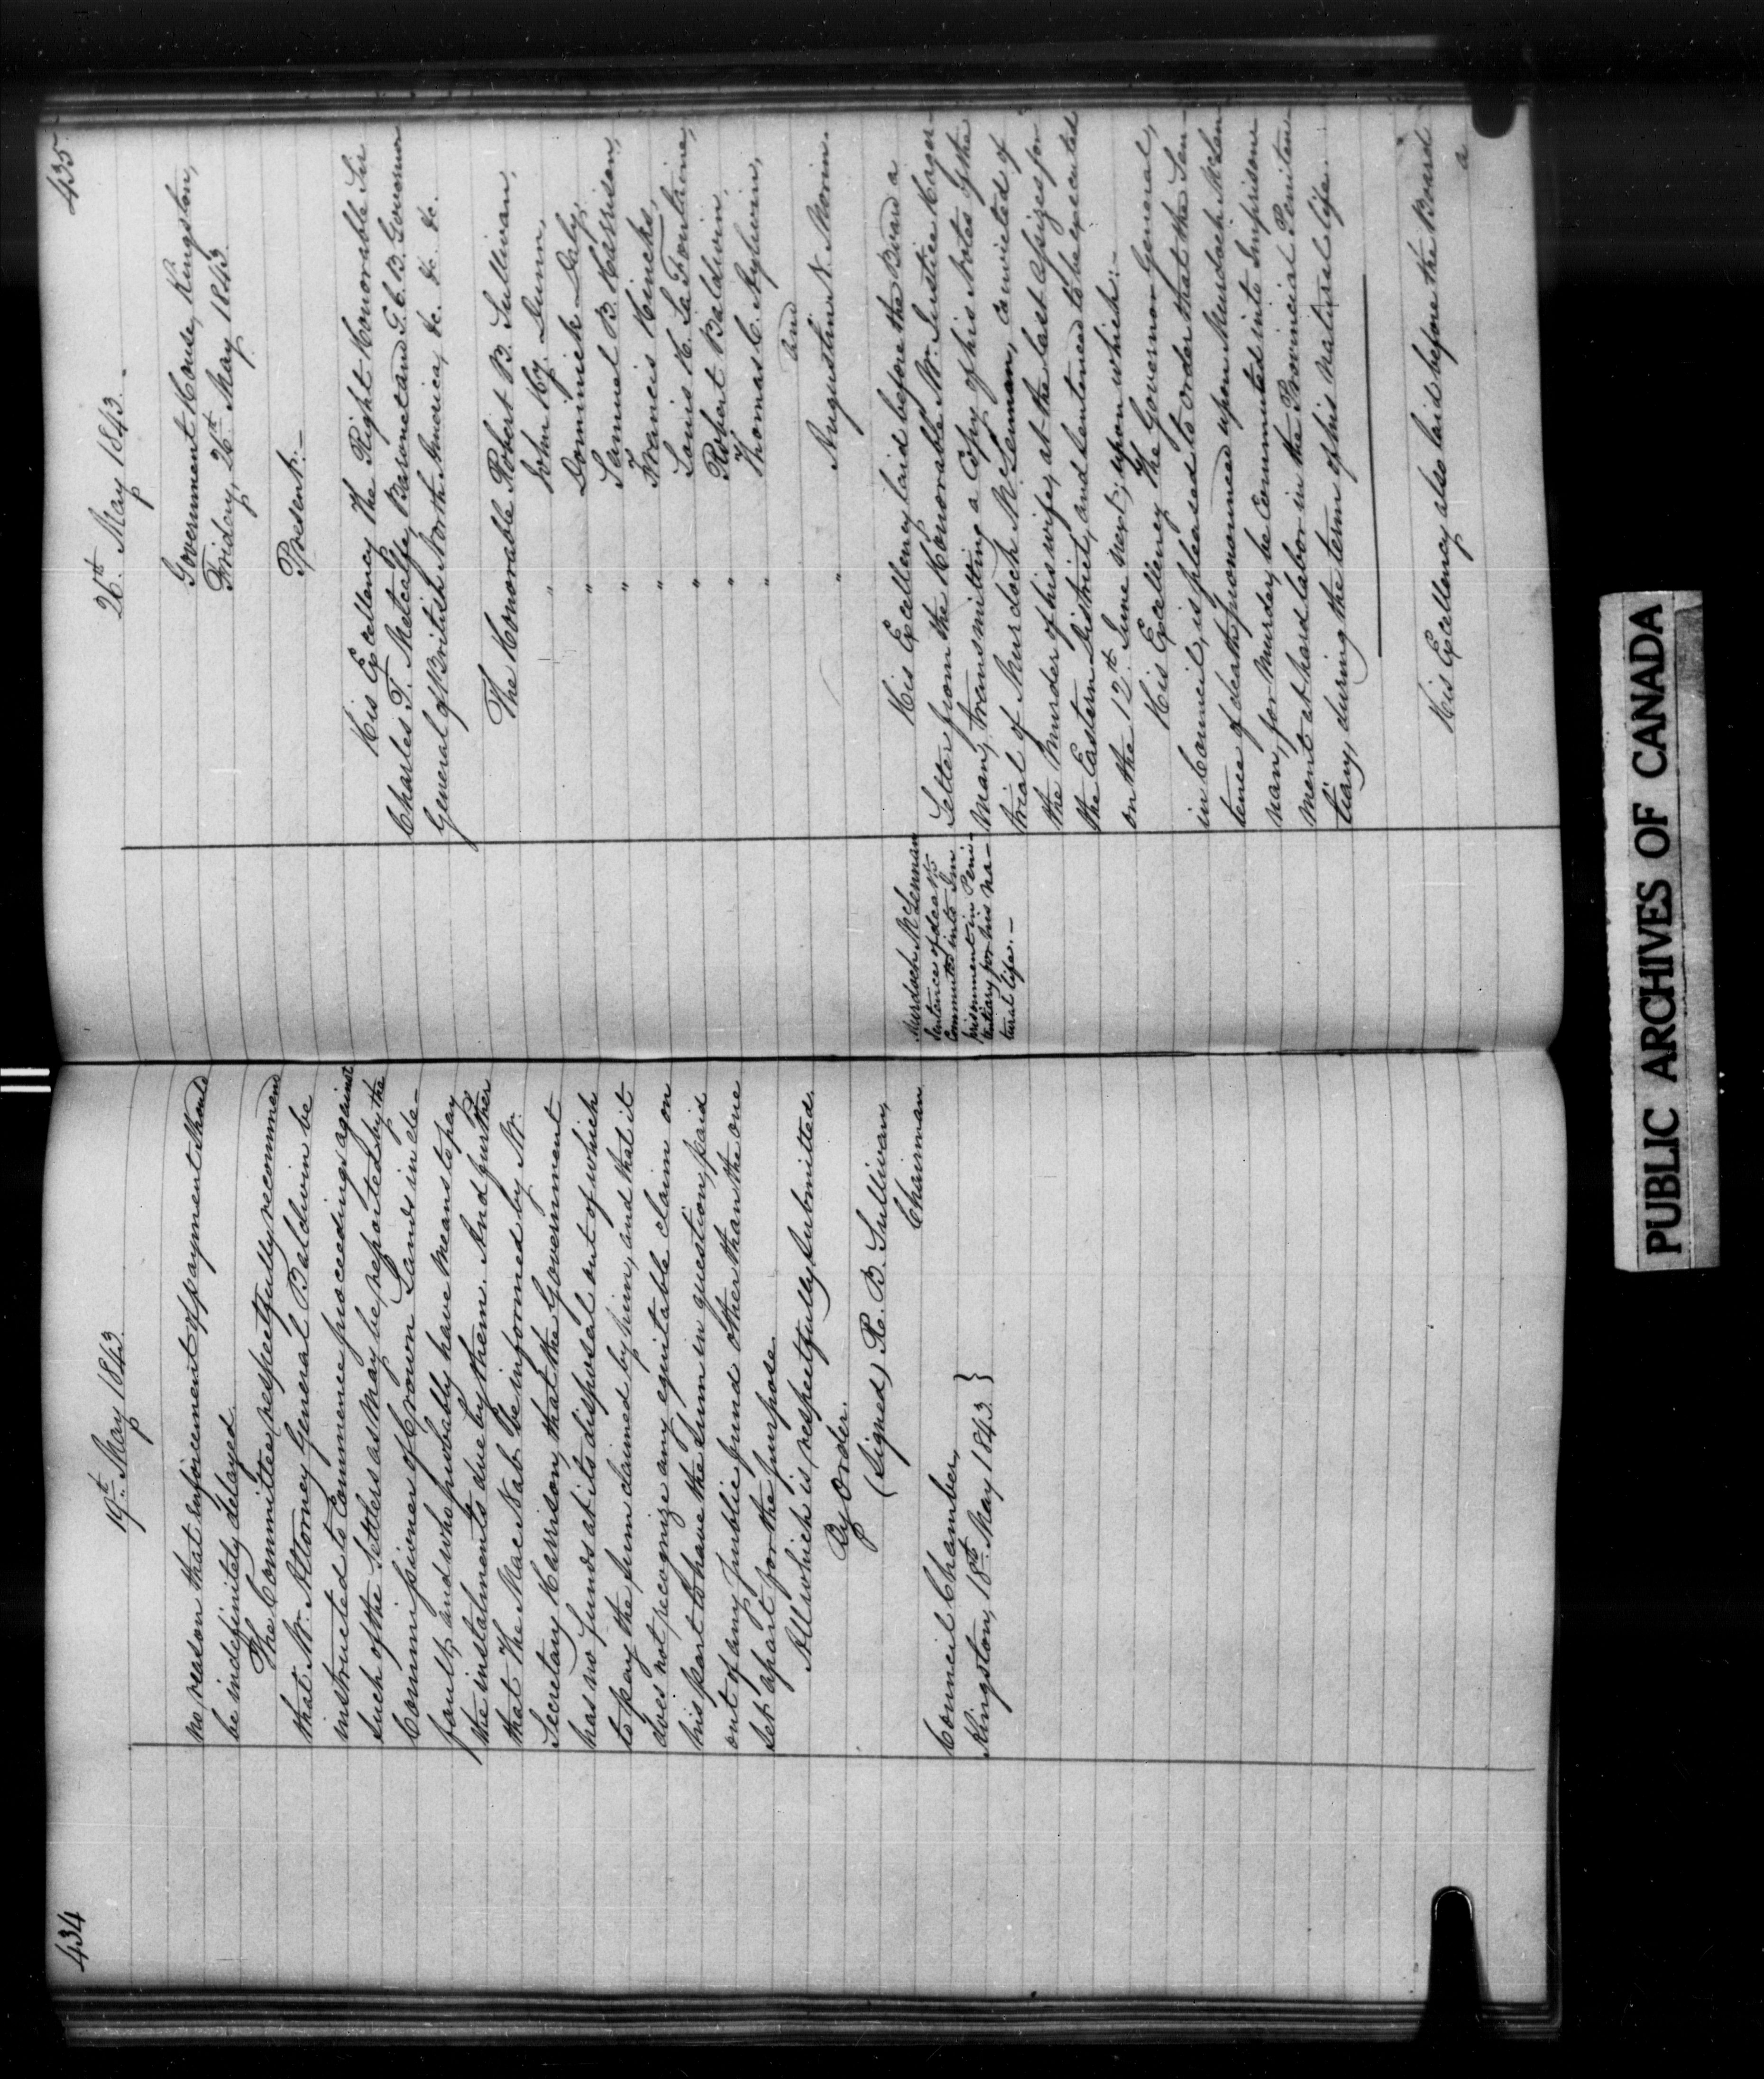 434
19th. May 1843.
no reason that enforcement of payment should
be indefinitely delayed.
The Committee respectfully recommend
that Mr. Attorney General Baldwin be
instructed to Commence proceedings against
such of the Settlers as may be reported by the
Commissioner of Crown Lands in de-
fault, and who probably have means to pay
the instalments due by them. And further
that The MacNab be informed by Mr.
Secretary Harrison, that the Government
has no funds at its disposal out of which
to pay the sum claimed by him, and that it
does not recognize any equitable claim on
his part to have the sum in question, paid
out of any public fund other than the one
set apart for the purpose.
All which is respectfully submitted.
By Order.
(Signed) R. B. Sullivan,
Chairman
Council Chamber,
Kingston, 18th. May 1843. }
435.
26th. May 1843.
Government House, Kingston,
Friday, 26th. May 1843.
Present:-
His Excellency The Right Honorable Sir
Charles T. Metcalfe, Baronet and G.C.B. Governor
General of British North America, &c. &c. &c.
The Honorable Robert B. Sullivan,
" John Hy. Dunn,
" Dominick Daly,
" Samuel B. Harrison,
" Francis Hincks,
" Louis H. LaFontaine,
" Robert Baldwin,
" Thomas C. Aylwin,
and
" Augustin N. Morin.
His Excellency laid before the Board a
Letter from the Honorable Mr. Justice Hager-
man, transmitting a Copy of his Notes of the
trial of Murdoch McLennan, convicted of
the Murder of his wife, at the last Assizes for
the Eastern District, and sentenced to be executed
on the 12th. June next; upon which:-
His Excellency The Governor General,
in Council, is pleased to order that the Sen-
tence of death pronounced upon Murdoch McLen
nan, for Murder, be Commuted into Imprison
ment at hard labor in the Provincial Peniten-
tiary, during the term of his natural life.
Murdoch McLennan
Sentence of death
Commuted into Im
prisonment in Peni-
tentiary for his na-
tural life.-
His Excellency also laid before the Board
a
PUBLIC ARCHIVES OF CANADA